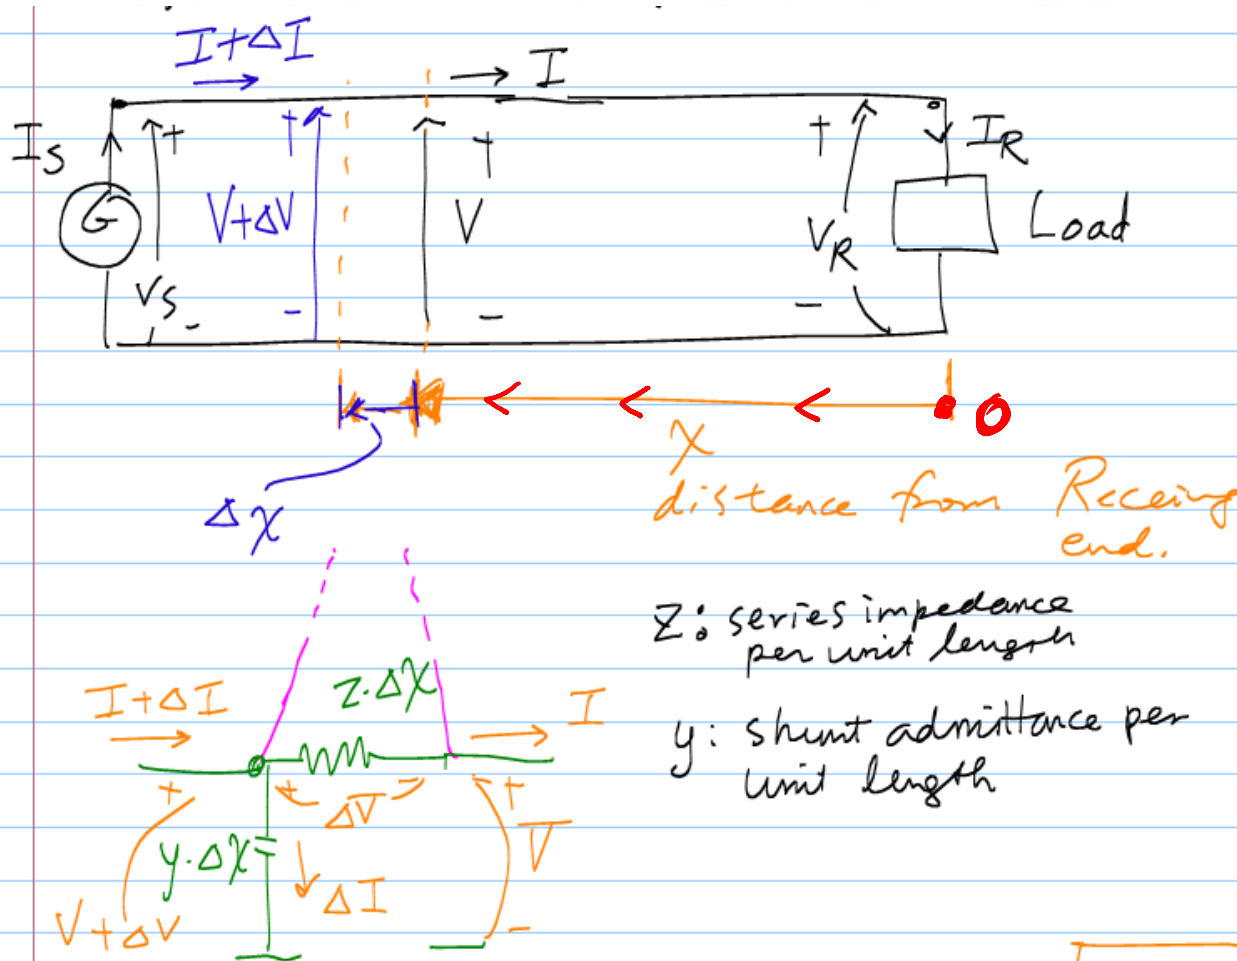 I+ΔI
I
I_S
+
+
+
+
I_R
G
V+ΔV
V
V_R
Load
V_S
-
-
-
-
0
x
distance from Receing
end.
Δx
z: series impedance
per unit length
I+ΔI
z·Δx
I
y: shunt admittance per
unit length
+
+
ΔV
-
+
V
y·Δx
ΔI
V+ΔV
-